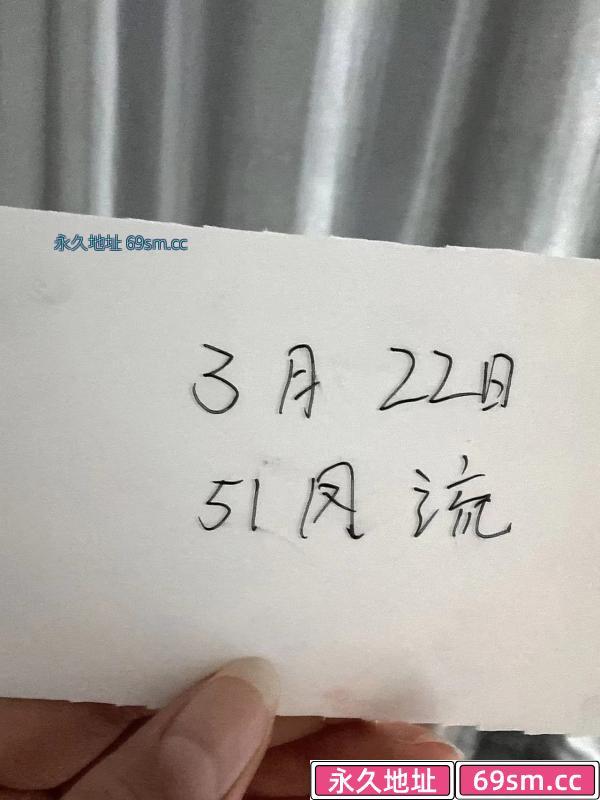 永久地址 69sm.cc
3月22日
51风流
永久地址 69sm.cc